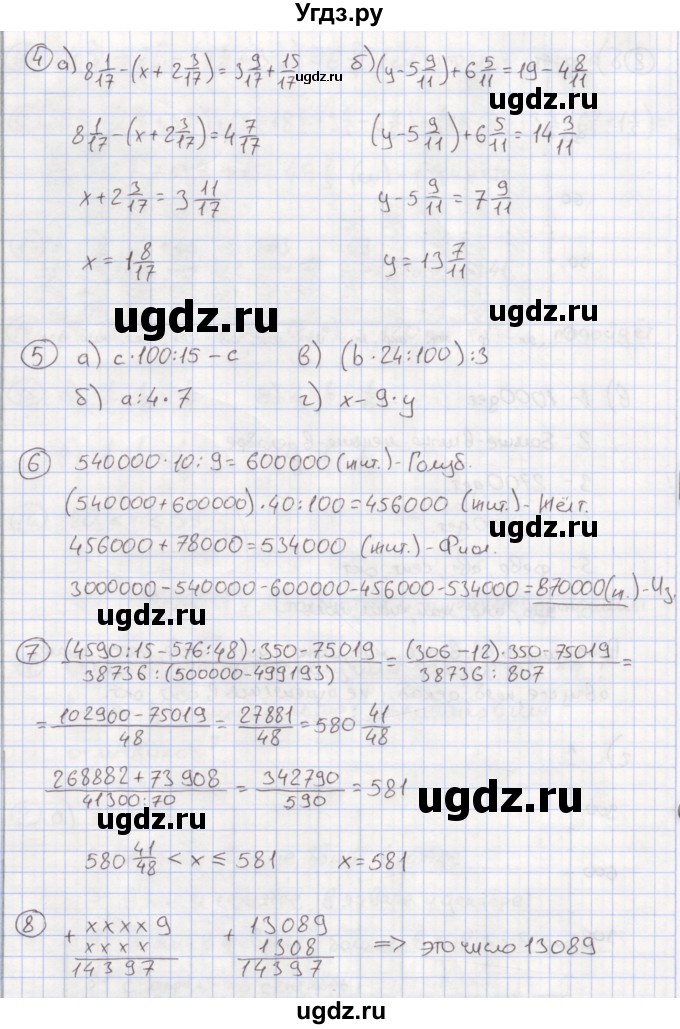 Угдз.ру
4 а) 8 1/17 - (x + 2 3/17) = 3 9/17 + 15/17   б) (y - 5 9/11) + 6 5/11 = 19 - 4 8/11
ugdz.ru
8 1/17 - (x + 2 3/17) = 4 7/17   (y - 5 9/11) + 6 5/11 = 14 3/11
x + 2 3/17 = 3 11/17   y - 5 9/11 = 7 9/11
x = 1 8/17   y = 13 7/11
ugdz.ru ugdz.ru
5 а) c·100:15 - c   в) (b·24:100):3
б) a:4·7   г) x - 9·y
ugdz.ru
6 540000·10:9 = 600000 (шт.) - Голуб.
(540000 + 600000)·40:100 = 456000 (шт.) - Жёлт.
ugdz.ru
456000 + 78000 = 534000 (шт.) - Фиол.
3000000 - 540000 - 600000 - 456000 - 534000 = 870000 (ш.) - Чз.
ugdz.ru
7 (4590:15 - 576:48)·350 - 75019 / 38736:(500000 - 499193) = (306 - 12)·350 - 75019 / 38736:807 =
= 102900 - 75019 / 48 = 27881 / 48 = 580 41/48
ugdz.ru
268882 + 73908 / 41300:70 = 342790 / 590 = 581
ugdz.ru ugdz.ru
580 41/48 < x ≤ 581   x = 581
8 + xxxx9   + 13089
xxxx   1308   => это число 13089
14397   14397
ugdz.ru
ugdz.ru